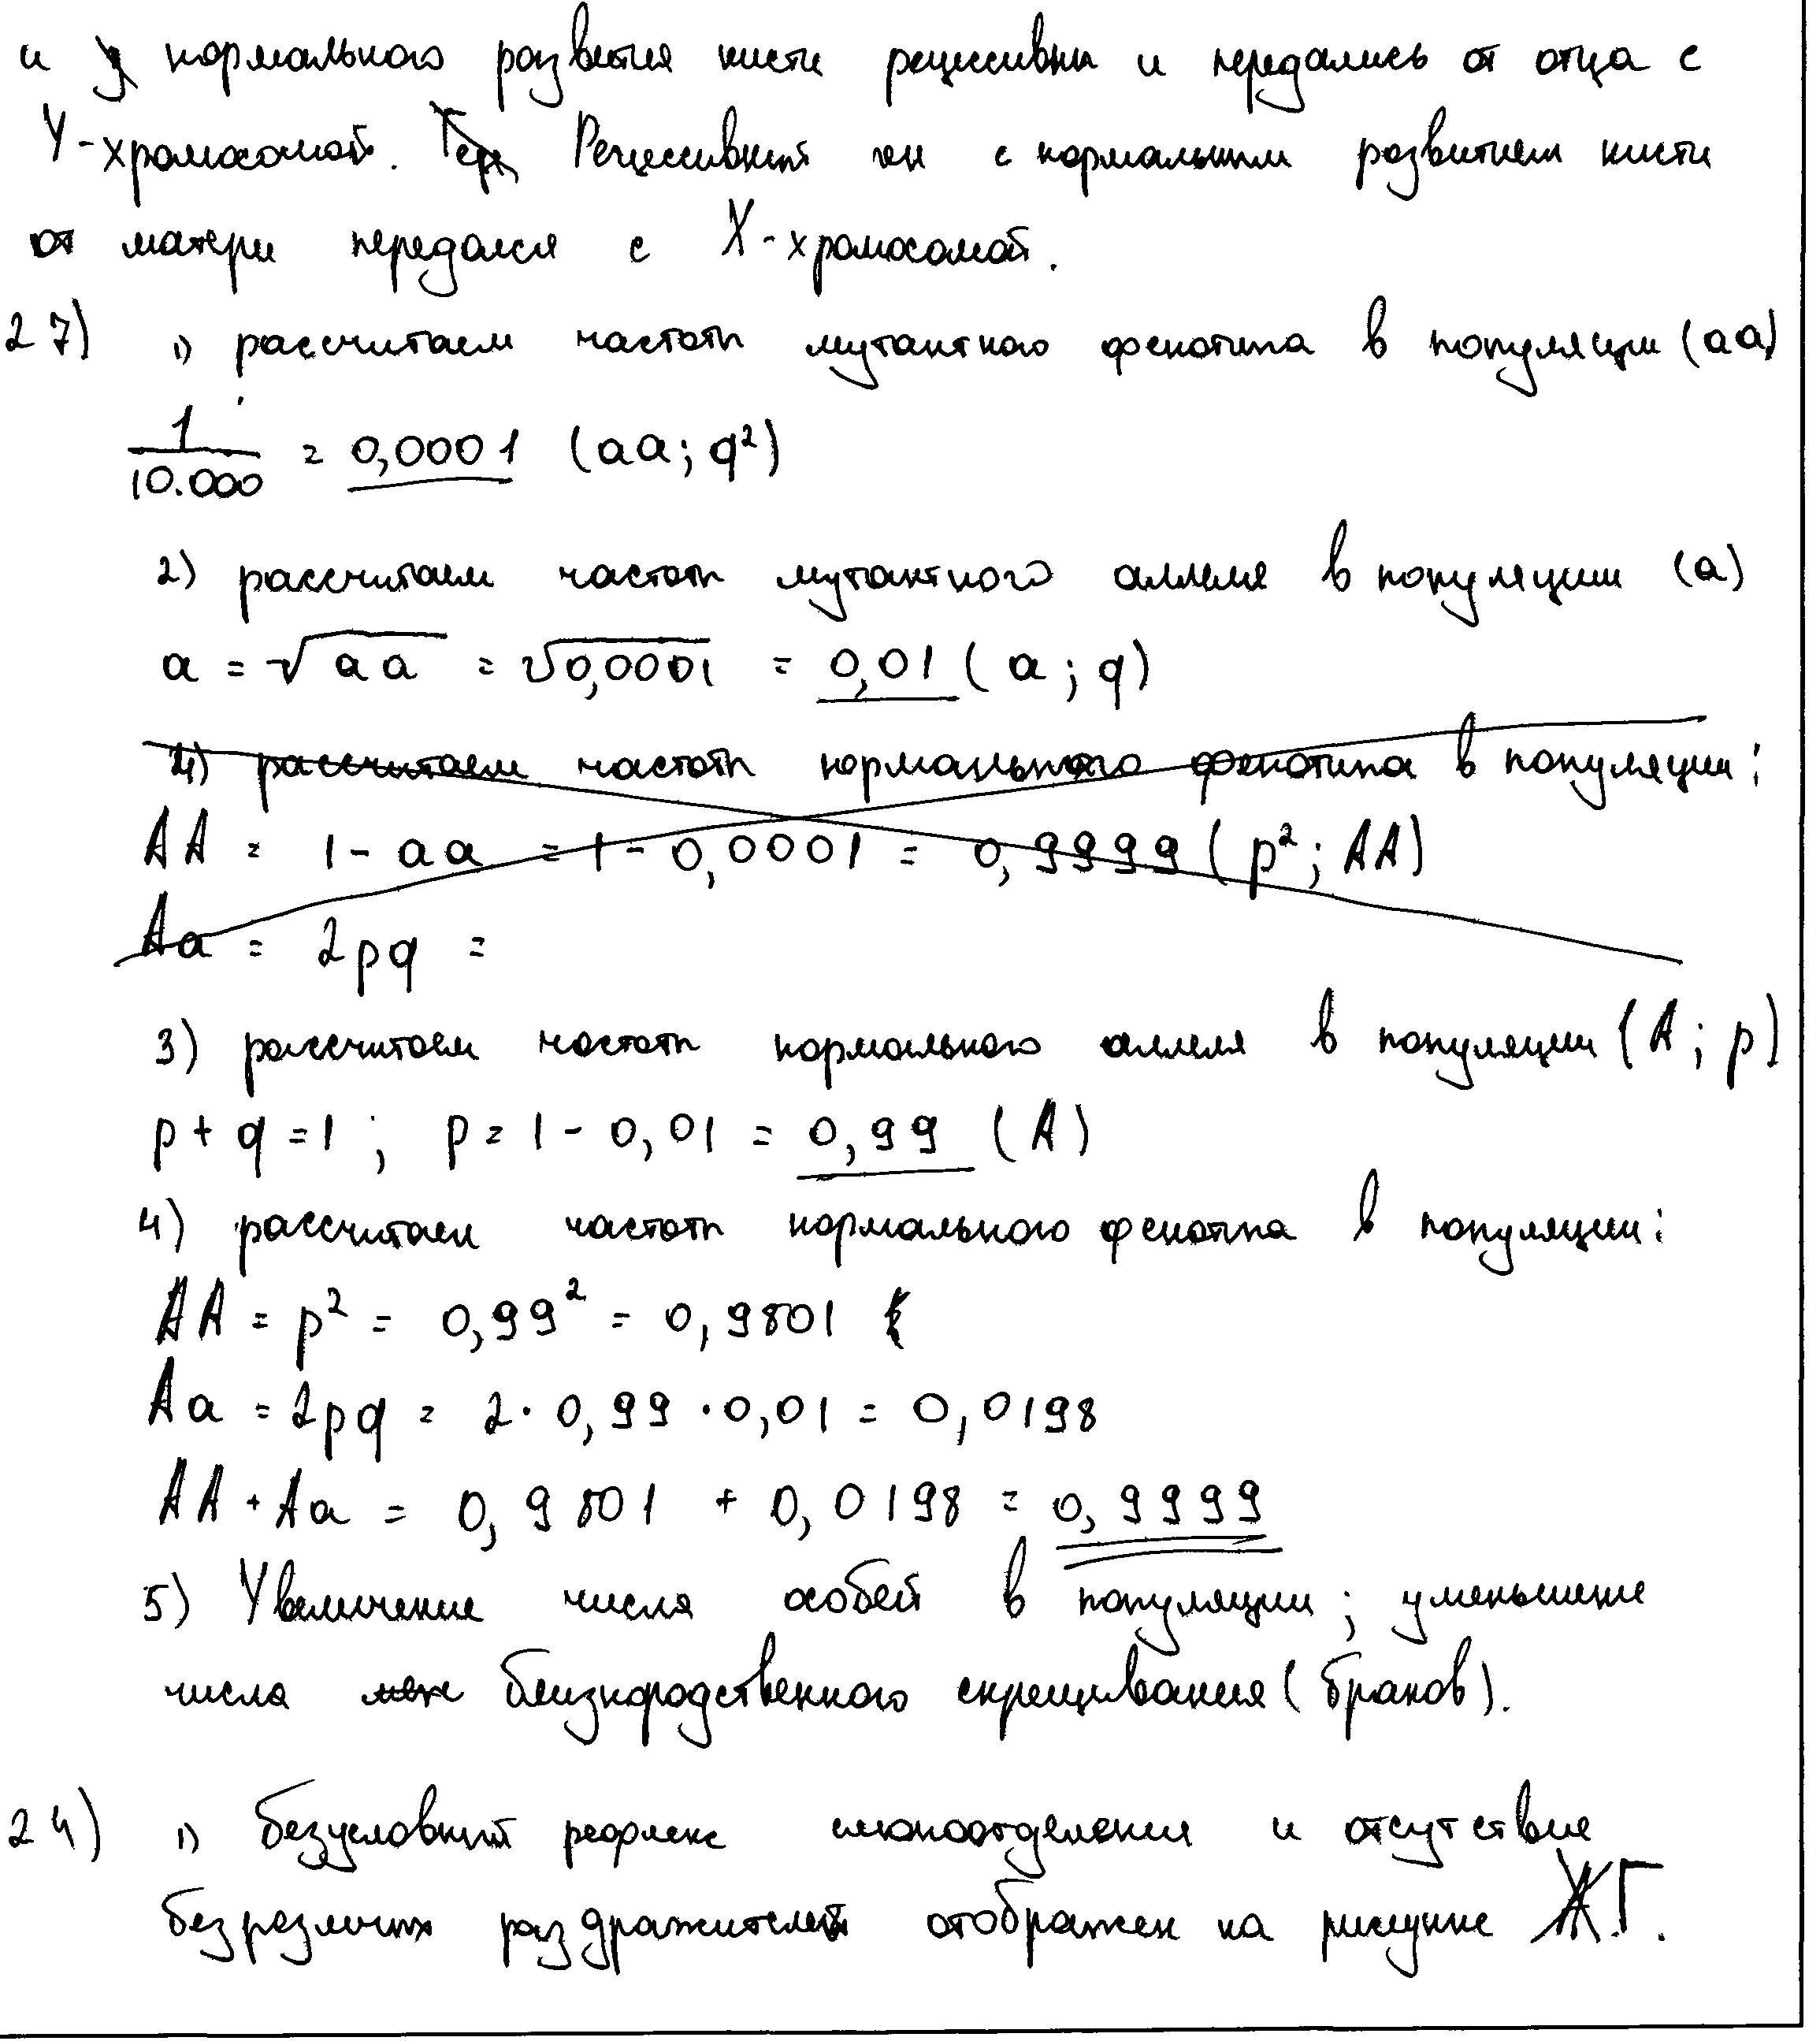 и нормального развития кисти рецессивны и передались от отца с
Y-хромосомой. Рецессивный ген с нормальным развитием кисти
от матери передался с X-хромосомой.
27) 1) рассчитаем частоты мутантного фенотипа в популяции (aa)
1/10.000 = 0,0001 (aa; q²)
2) рассчитаем частоты мутантного аллеля в популяции (a)
a = √aa = √0,0001 = 0,01 (a; q)
4) рассчитаем частоты нормального фенотипа в популяции:
AA = 1 - aa = 1 - 0,0001 = 0,9999 (p²; AA)
Aa = 2pq =
3) рассчитаем частоты нормального аллеля в популяции (A; p)
p + q = 1 ; p = 1 - 0,01 = 0,99 (A)
4) рассчитаем частоты нормального фенотипа в популяции:
AA = p² = 0,99² = 0,9801
Aa = 2pq = 2 · 0,99 · 0,01 = 0,0198
AA + Aa = 0,9801 + 0,0198 = 0,9999
5) Увеличение числа особей в популяции ; уменьшение
числа близкородственного скрещивания (браков).
24) 1) безусловный рефлекс слюноотделения и отсутствие
безразличных раздражителей отображен на рисунке Г.